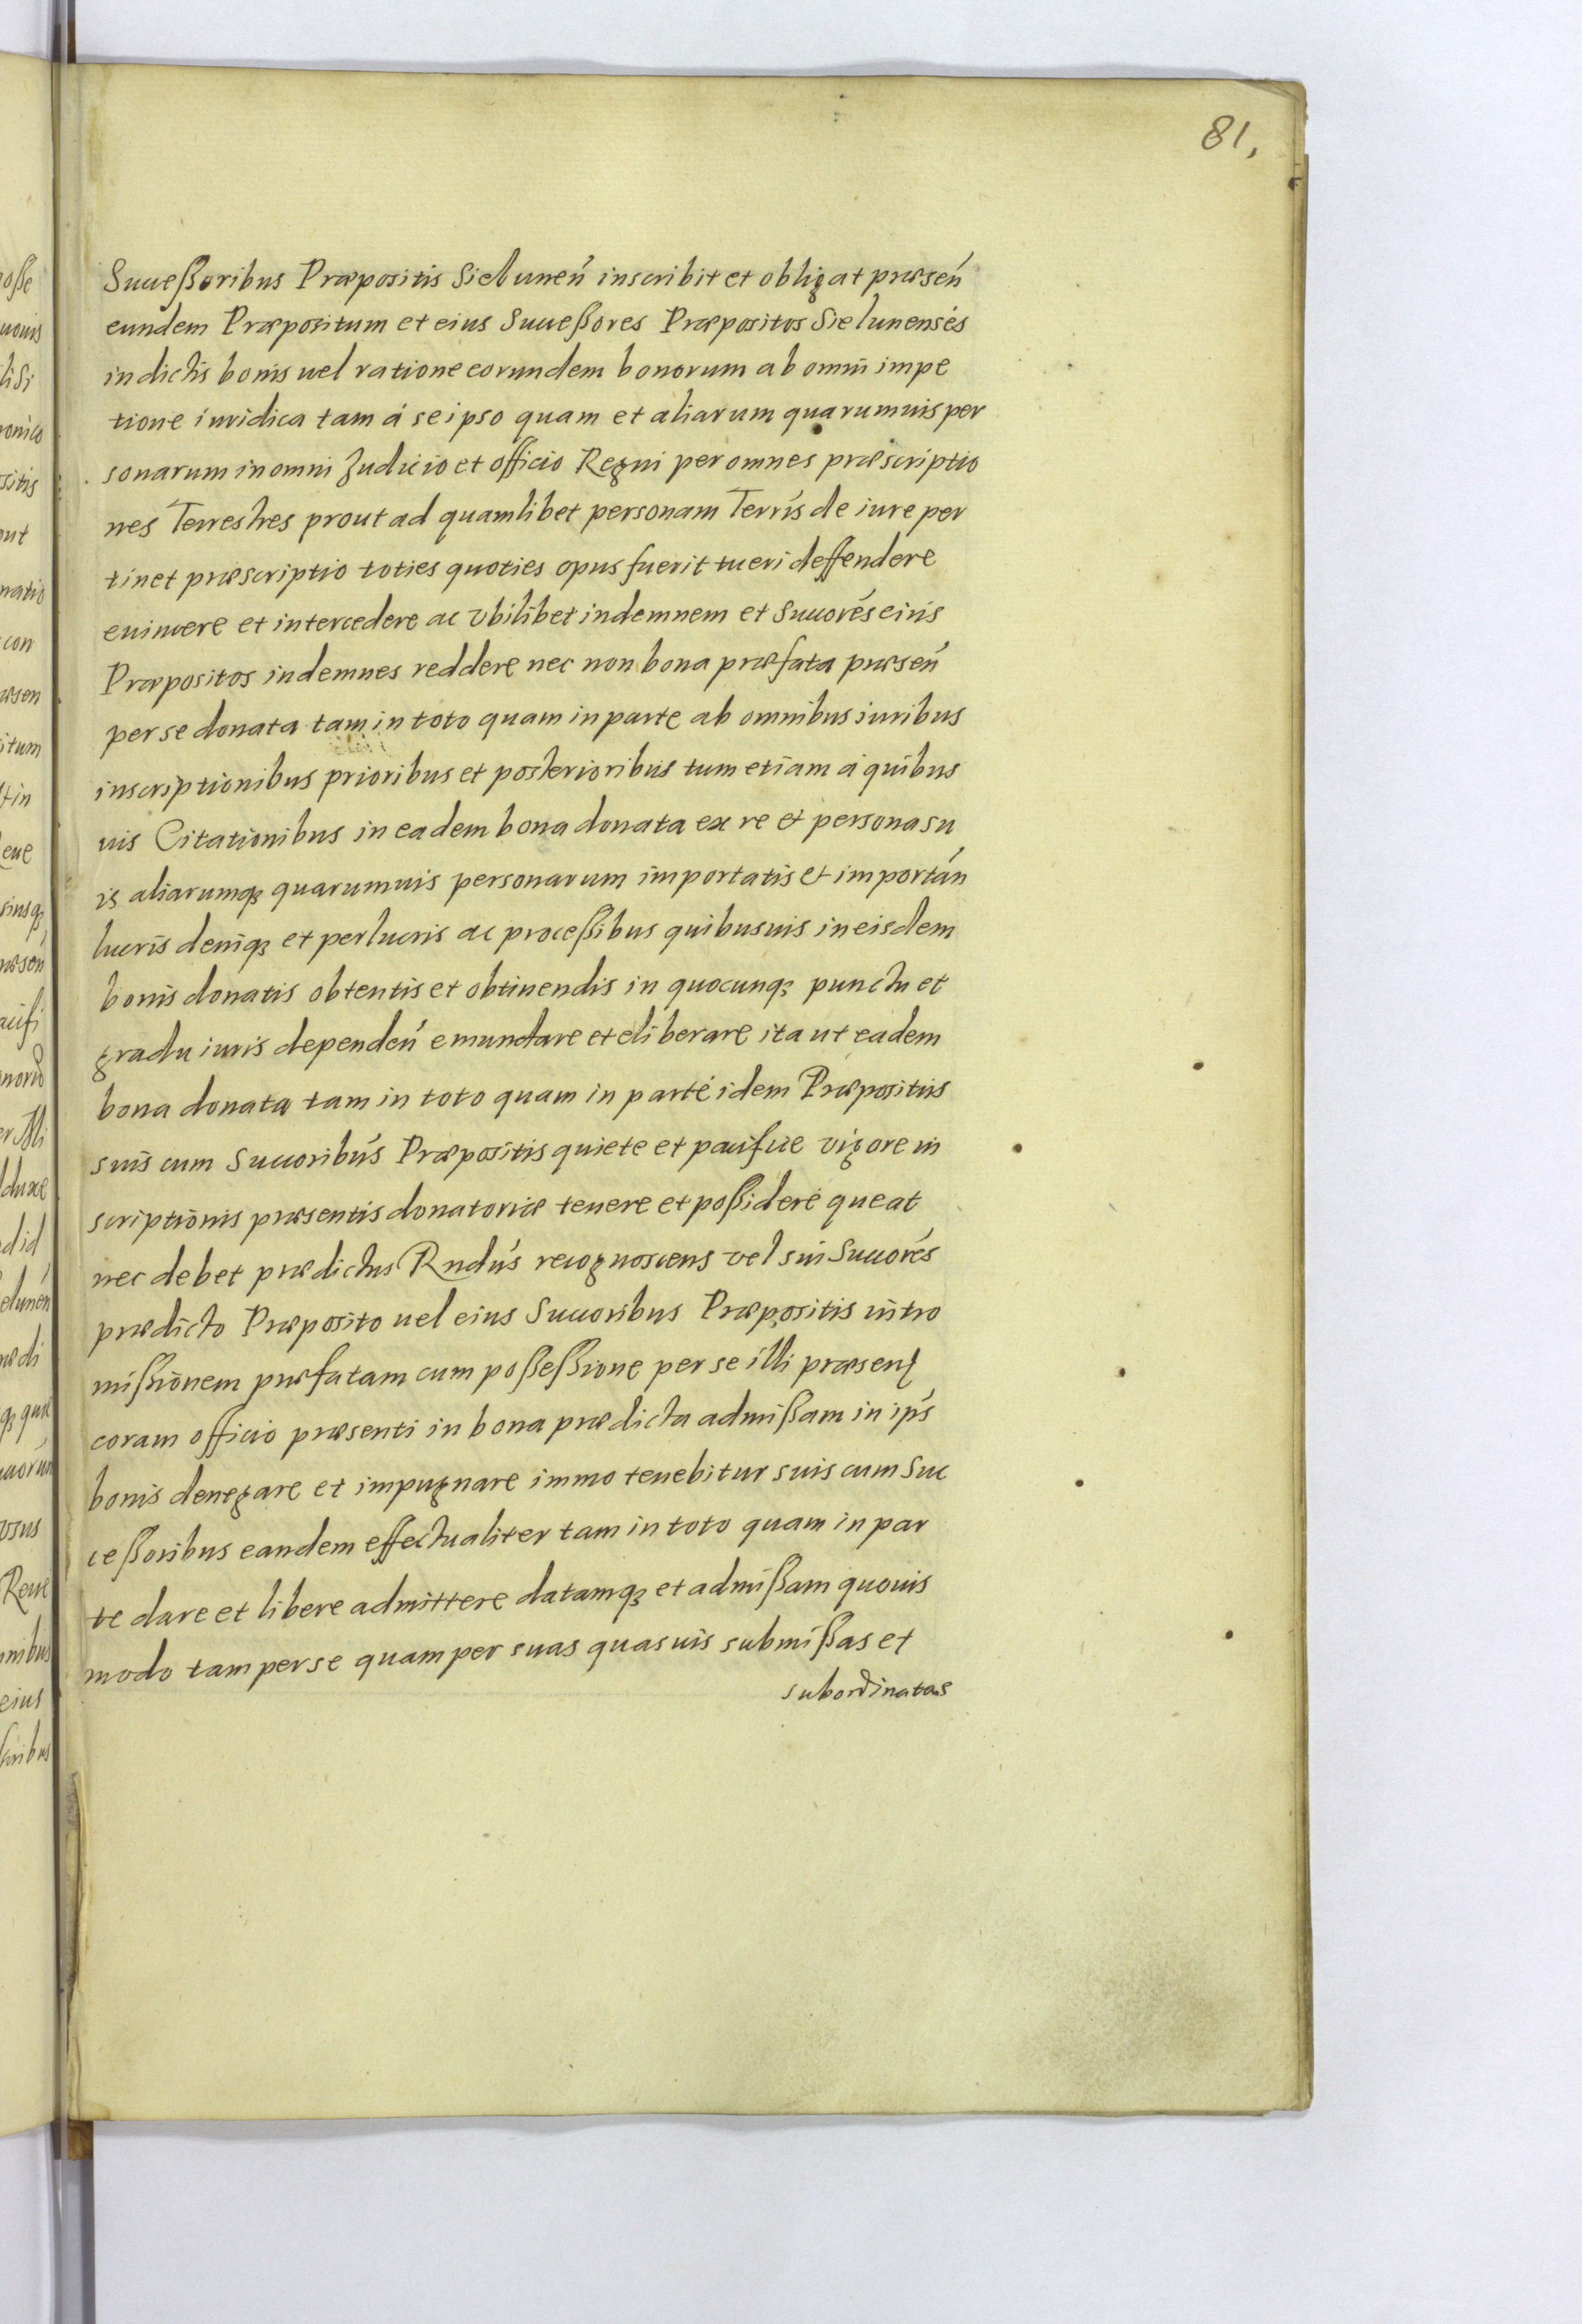 81,
Succeßoribus Præpositis Sielunen̄ inscribit et obligat præsen̄
eundem Præpositum et eius Succeßores Præpositos Sielunensēs
in dictis bonis uel ratione eorundem bonorum ab omni impe
tione iuridica tam á se ipso quam et aliarum quarumuis per
sonarum in omni Judicio et officio Regni per omnes præscriptio
nes Terrestres prout ad quamlibet personam Terrīs de iure per
tinet præscriptio toties quoties opus fuerit tueri deffendere
euincere et intercedere ac vbilibet indemnem et Succorēs eius
Præpositos indemnes reddere nec non bona præfata præsen̄
per se donata tam in toto quam in parte ab omnibus iuribus
inscriptionibus prioribus et posterioribus tum etiam á quibus
uis Citationibus in eadem bona donata ex re et persona su
is aliarumq₃ quarumuis personarum importatis et importān
lucris deniq₃ et perlucris ac proceßibus quibusuis in eisdem
bonis donatis obtentis et obtinendis in quocunq₃ punctu et
gradu iuris dependen̄ emundare et eliberare ita ut eadem
bona donata tam in toto quam in parte idem Præpositus
suis cum Succoribūs Præpositis quiete et pacifice vigore in
scriptionis præsentis donatoriæ tenere et poßidere queat
nec debet prædictus Rndūs recognoscens vel sui Succorēs
prædicto Præposito uel eius Succoribus Præpositis intro
mißionem præfatam cum poßeßione per se illi præsenꝭ
coram officio præsenti in bona prædicta admißam in ip̄s
bonis denegare et impugnare immo tenebitur suis cum Suc
ceßoribus eandem effectualiter tam in toto quam in par
te dare et libere admittere datamq₃ et admißam quouis
modo tam per se quam per suas quasuis submißas et
subordinatas